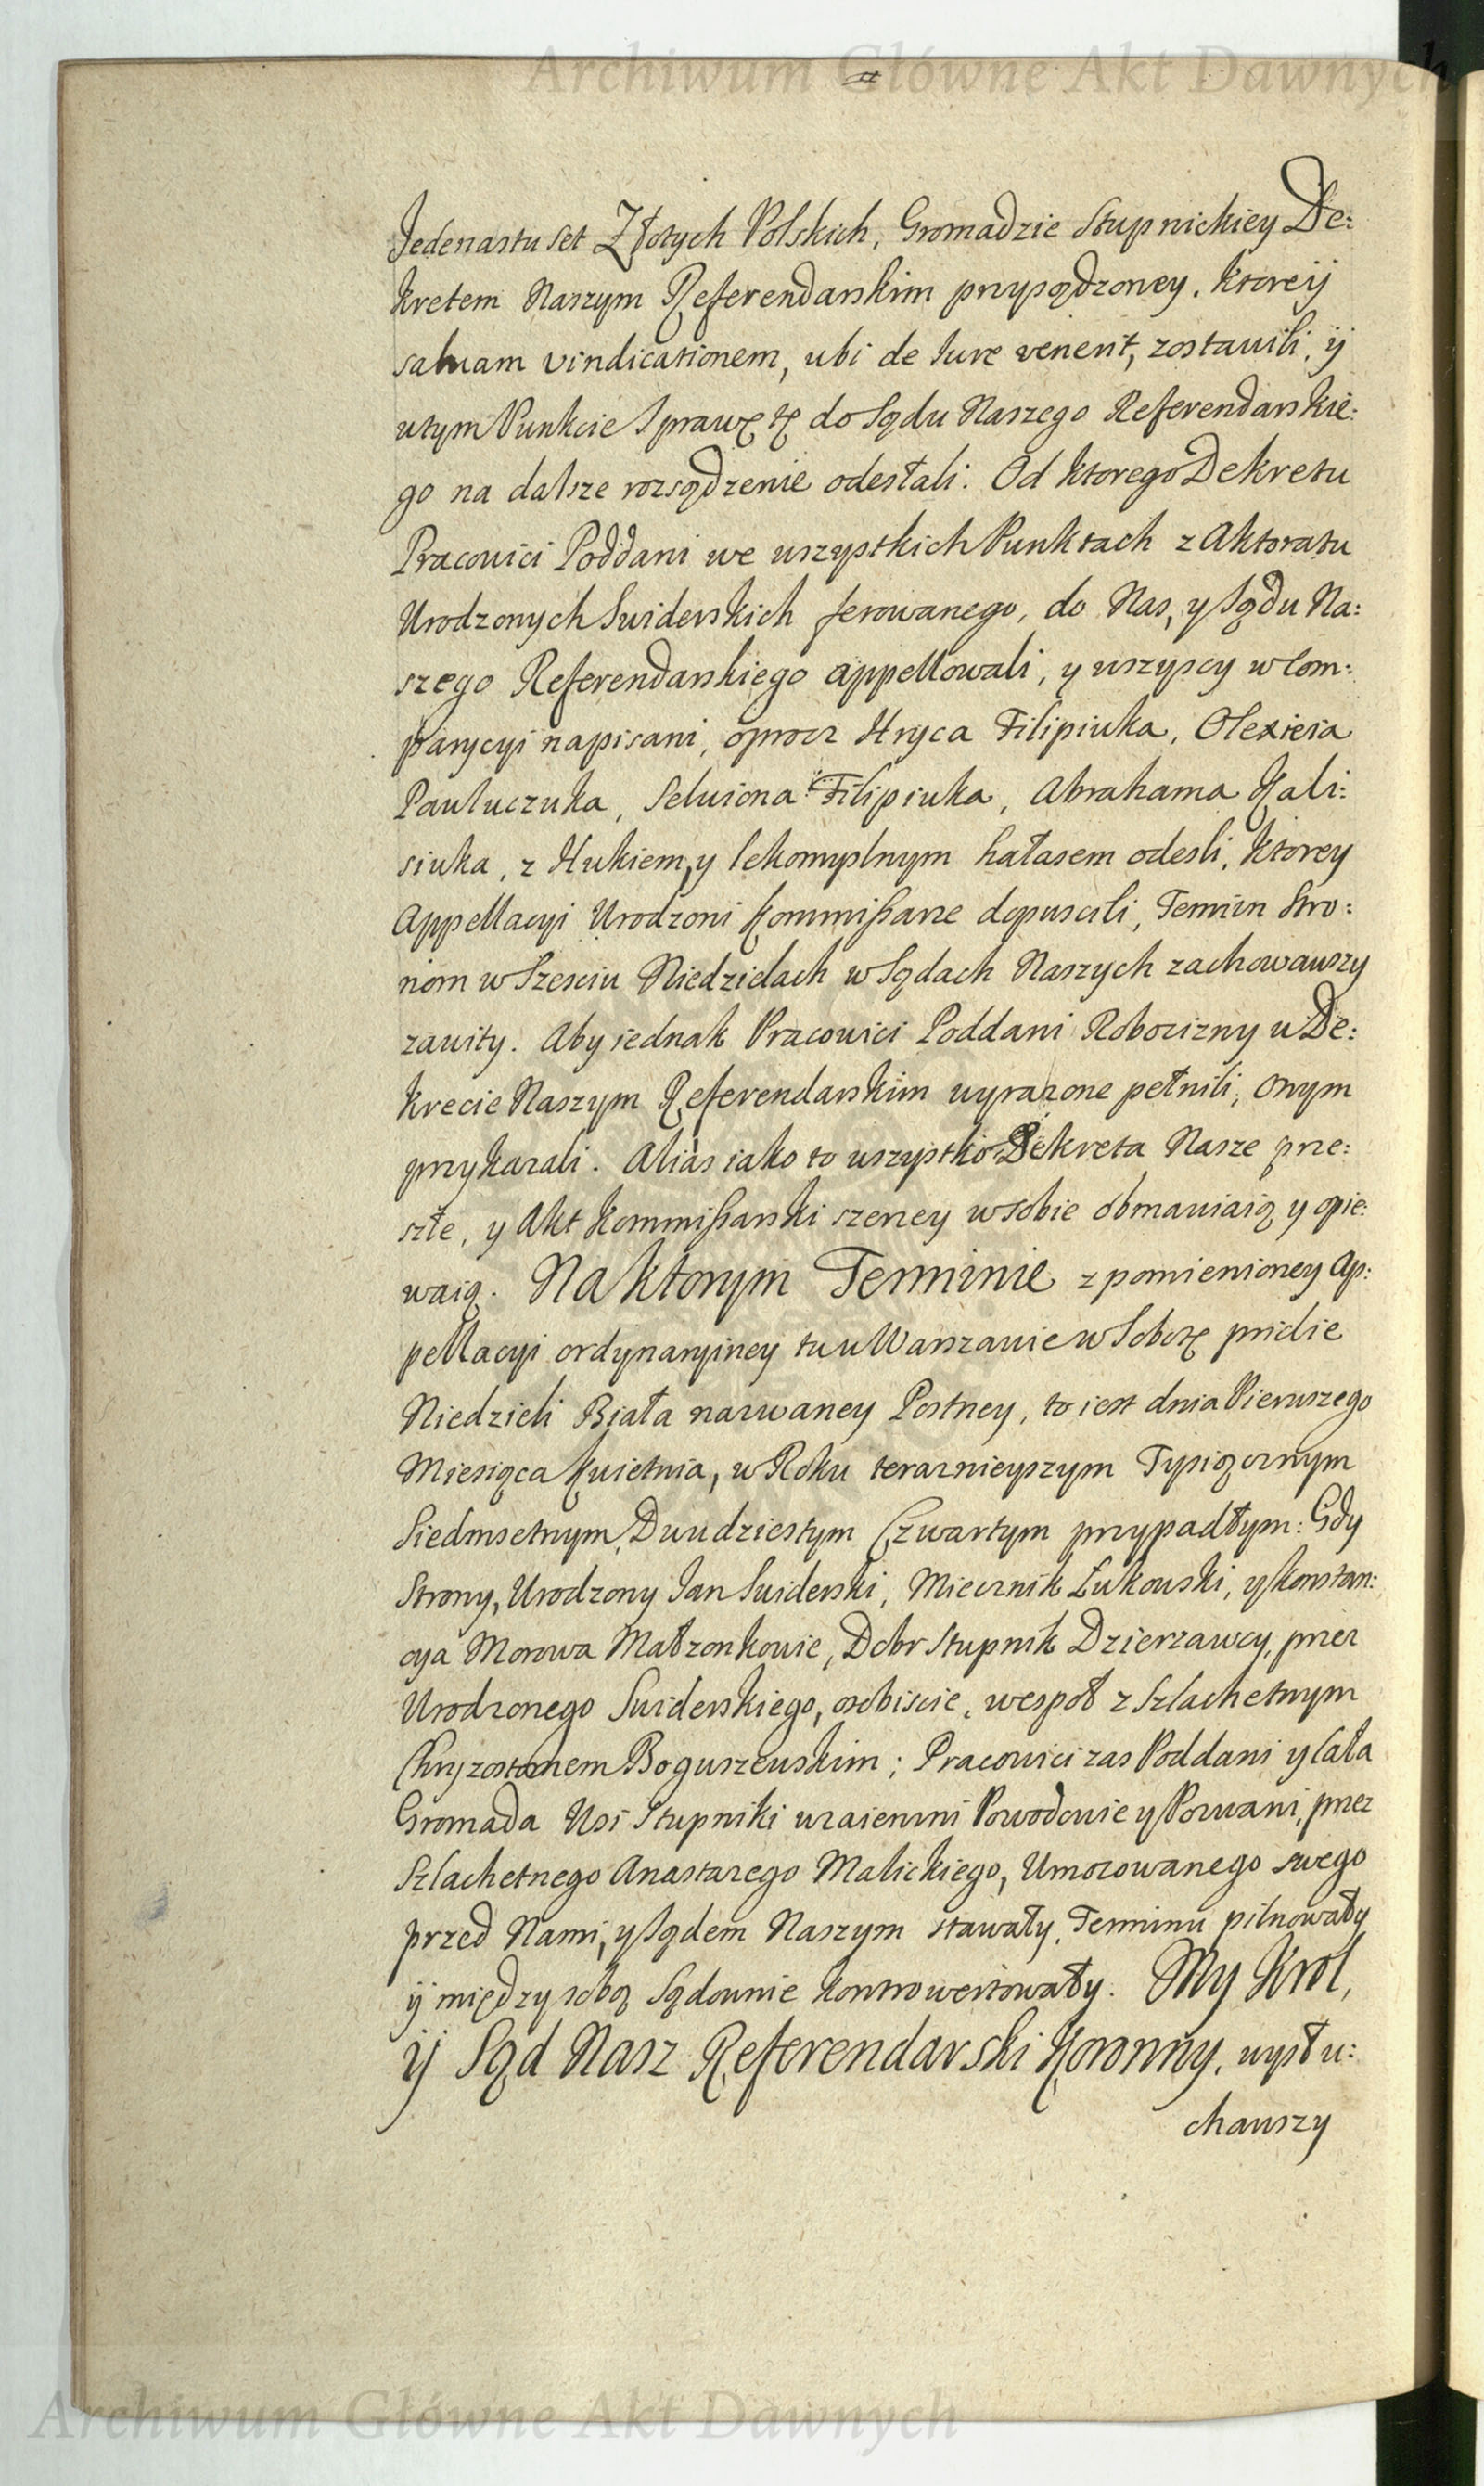 Archiwum Główne Akt Dawnych
Jedenastu set Złotych Polskich, Gromadzie Stupnickiey De:
kretem Naszym Referendarskim przysądzoney, ktoreÿ
salvam vindicationem, ubi de Iure venerit, zostawili, ÿ
wtym Punkcie Sprawę tę do Sądu Naszego Referendarskie:
go na dalsze rozsądzenie odesłali. Od ktorego Dekretu
Pracowici Poddani we wszystkich Punktach z Aktoratu
Urodzonych Swiderskich ferowanego, do Nas, y Sądu Na:
szego Referendarskiego appellowali, y wszyscy w Com:
parycyi napisani, oprocz Hryca Filipiuka, Olexieia
Pawluczuka, Selwiona Filipiuka, Abrahama Kali:
siuka, z Hukiem, y lekomyslnym hałasem odesli, ktorey
Appellacyi Urodzoni Kommissarze dopuscili, Termin Stro:
nom w Szesciu Niedzielach w Sądach Naszych zachowawszy
zawity. Aby iednak Pracowici Poddani Robocizny w De:
krecie Naszym Referendarskim wyrazone pełnili, onym
przykazali. Alias iako to wszystko Dekreta Nasze prze:
szłe, y Akt Kommissarski szerzey w sobie obmawiaią y opie:
waią. Na ktorym Terminie z pomienioney Ap:
pellacyi ordynaryiney tu w Warszawie w Sobotę pridie
Niedzieli Biała nazwaney Postney, to iest dnia Pierwszego
Miesiąca Kwietnia, w Roku terazniey​szym Tysiącznym
Siedmsetnym, Dwudziestym Czwartym przypadłym: Gdy
Strony, Urodzony Jan Swiderski, Miecznik Łukowski, y Konstan:
cya Morowa Małzonkowie, Dobr Stupnik Dzierzawcy, przez
Urodzonego Swiderskiego, osobiscie, wespoł z Szlachetnym
Chryzostomem Boguszewskim; Pracowici zas Poddani y Cała
Gromada Wsi Stupniki wzaiemni Powodowie y Pozwani, przez
Szlachetnego Anastazego Malickiego, Umocowanego swego
przed Nami, y Sądem Naszym stawały, Terminu pilnowały
ÿ między sobą Sądownie kontrowertowały. My Krol,
ÿ Sąd Nasz Referendarski Koronny, wysłu:
chawszy
Archiwum Główne Akt Dawnych